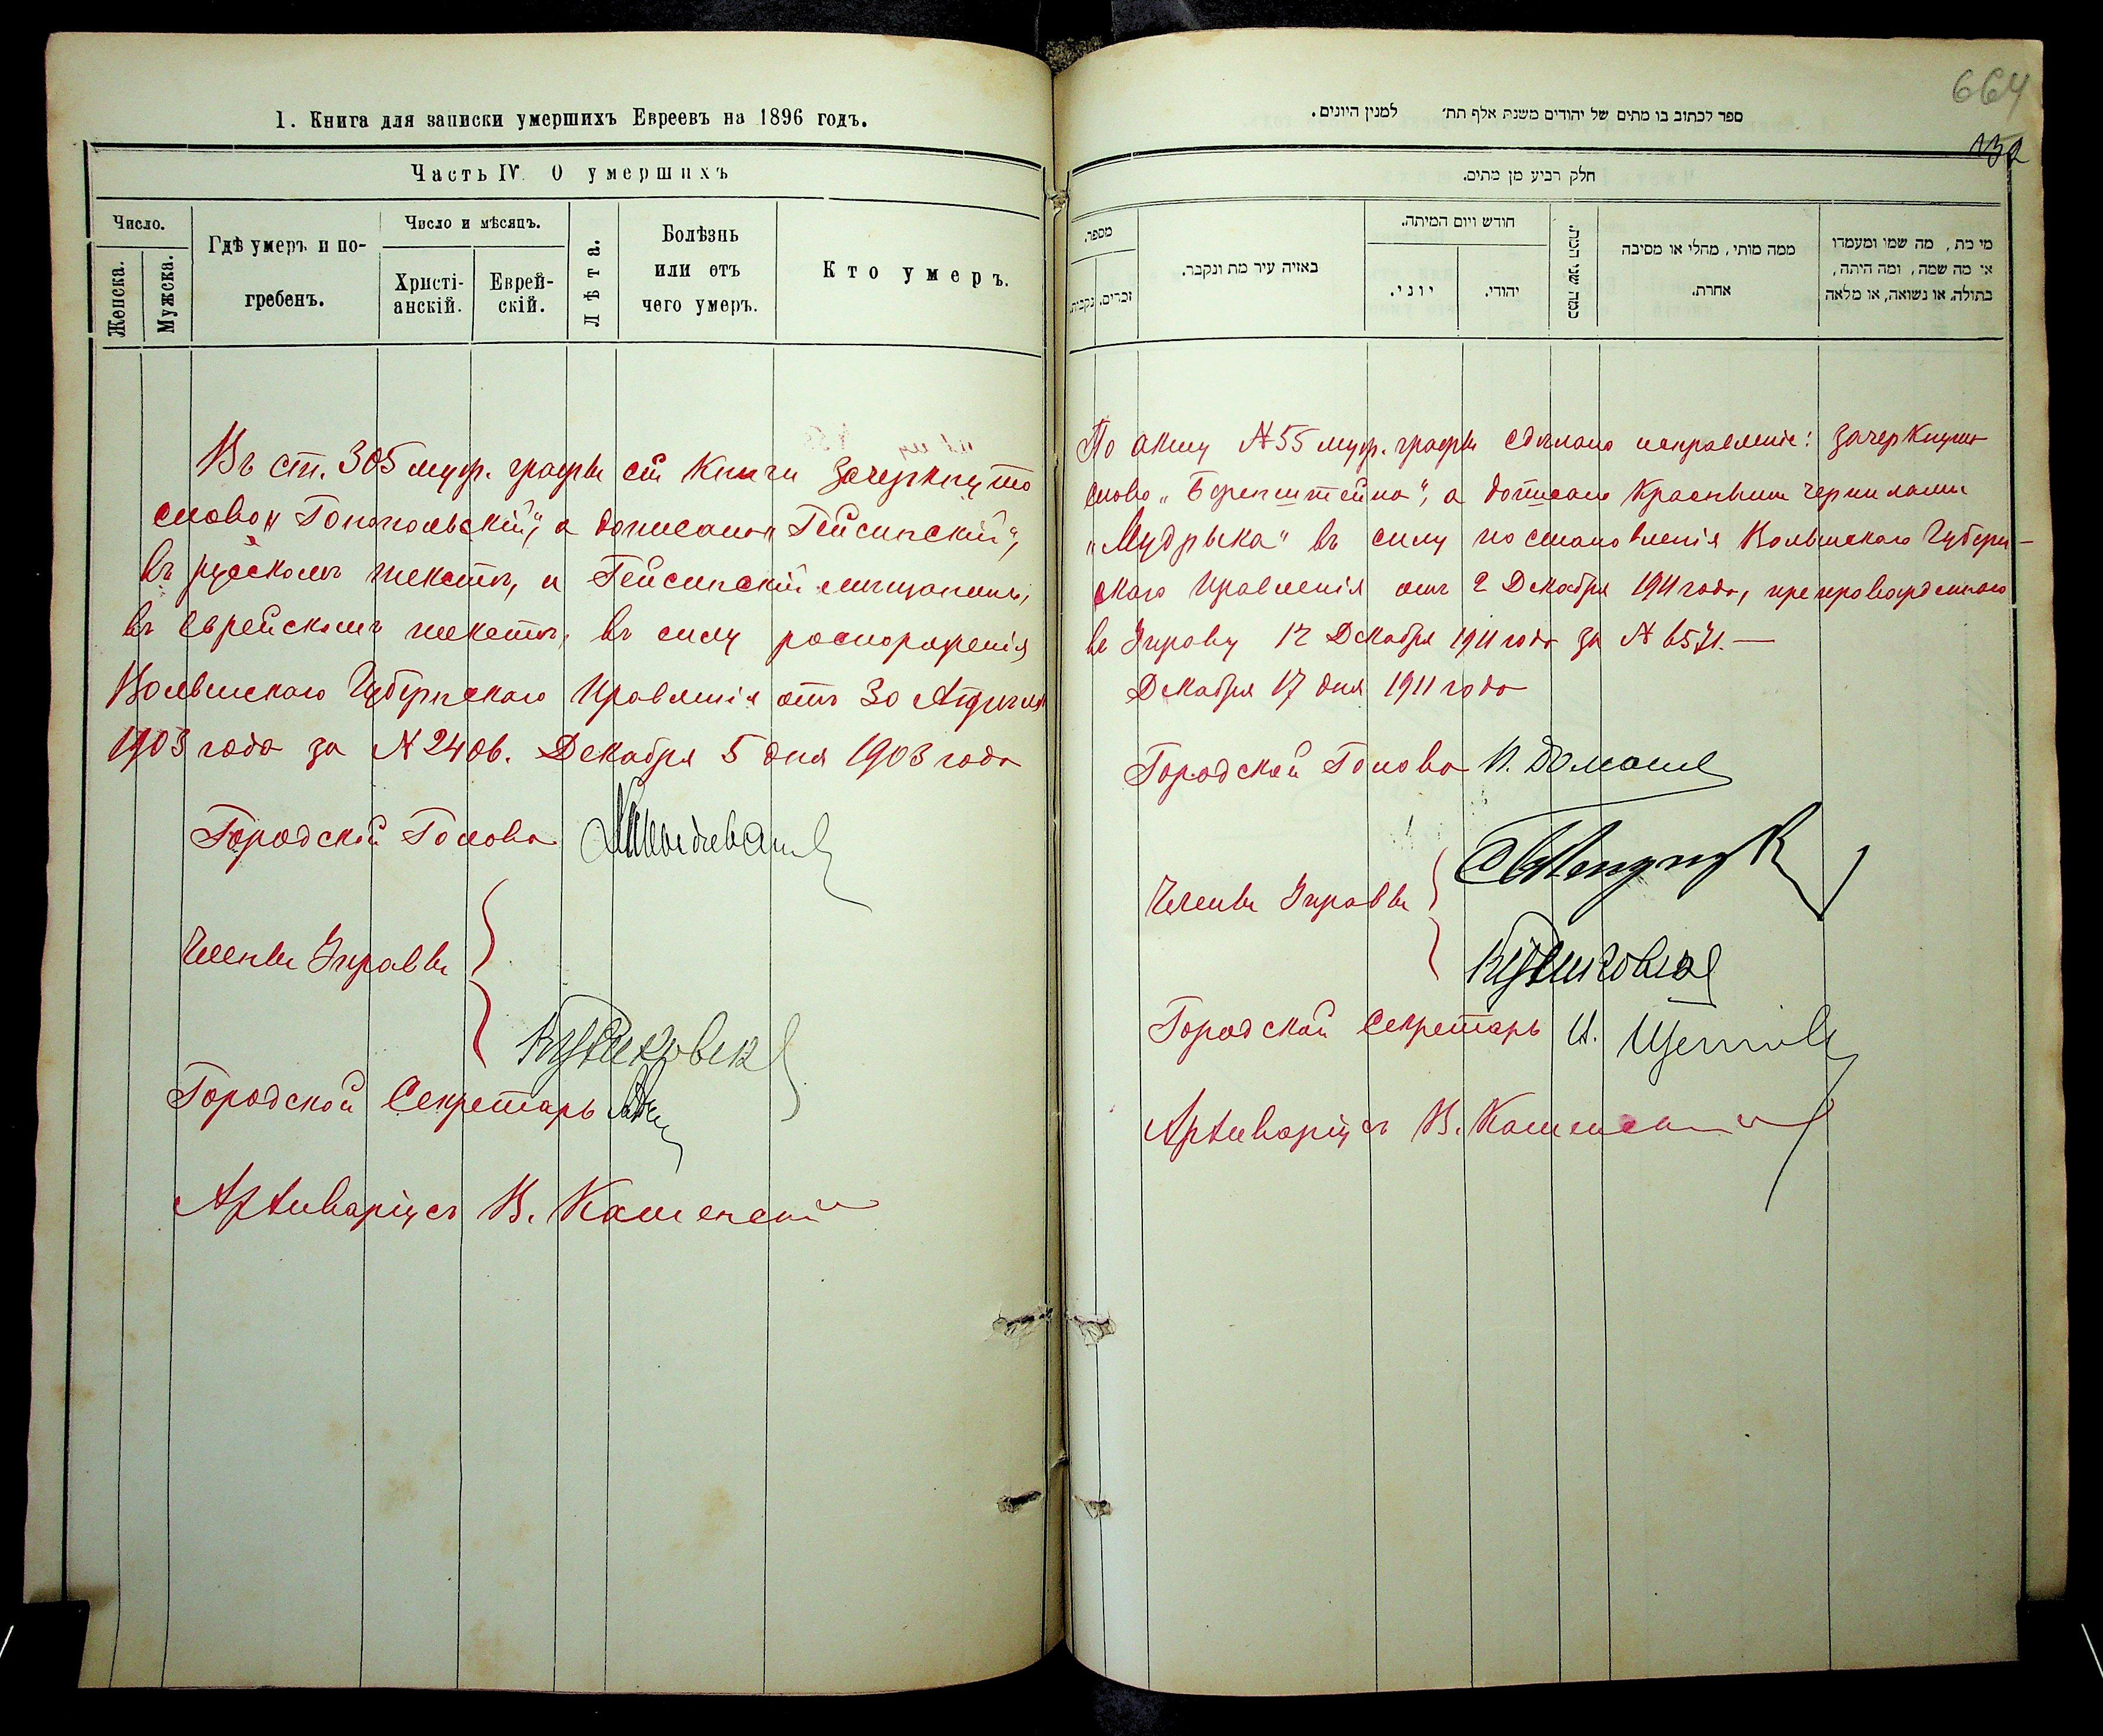 1. Книга для записки умершихъ Евреевъ на 1896 годъ.
Часть IV. О умершихъ
Число.
Женска.
Мужска.
Гдѣ умеръ и по-
гребенъ.
Число и мѣсяцъ.
Христі-
анскій.
Еврей-
скій.
Лѣта.
Болѣзнь
или отъ
чего умеръ.
Кто умеръ.
Въ ст. 305 муж. графы сей книги зачеркнуто
слово „Гонопольскій", а дописано „Гейсинскій",
въ русскомъ текстѣ, и Гейсинскій мѣщанинъ,
въ еврейскомъ текстѣ, въ силу распоряженія
Волынскаго Губернскаго Правленія отъ 30 Апрѣля
1903 года за № 2406. Декабря 5 дня 1903 года
Городской Голова
Члены Управы
Городской Секретарь
Архиваріусъ В. Каменскій
664
ספר לכתוב בו מתים של יהודים משנת אלף תת׳ למנין היונים.
חלק רביע מן מתים.
מספר.
זכרים.
נקבות.
באזיה עיר מת ונקבר.
חודש ויום המיתה.
יוני.
יהודי.
כמה שני המת.
ממה מותי, מהלי או מסיבה
אחרת.
מי מת, מה שמו ומעמדו
או מה שמה, ומה היתה,
בתולה, או נשואה, או מלאה
По акту № 55 муж. графы сдѣлано исправленіе: зачеркнуто
слово „Беренштейна", а дописано красными чернилами
„Мудрыка" въ силу постановленія Волынскаго Губерн-
скаго Правленія отъ 2 Декабря 1911 года, препровожденнаго
въ Управу 12 Декабря 1911 года за № 6571.—
Декабря 17 дня 1911 года
Городской Голова
Члены Управы
Городской Секретарь
Архиваріусъ В. Каменскій